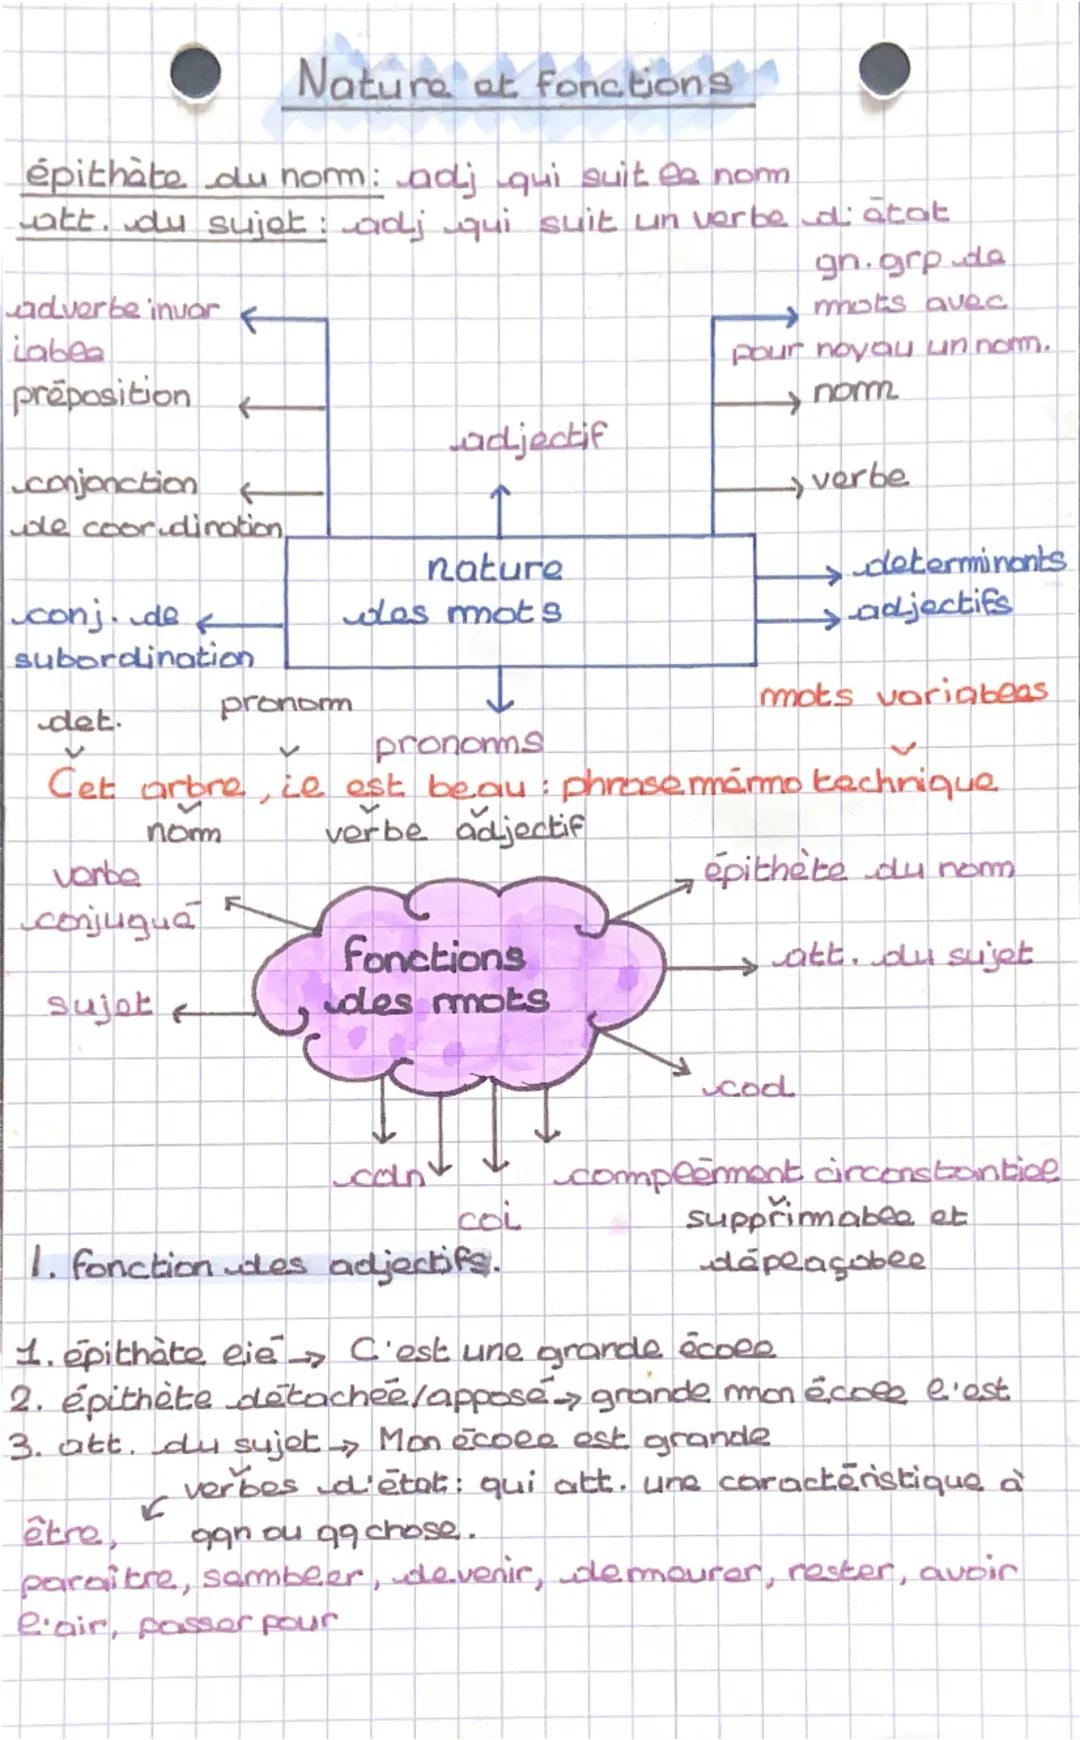 Nature et fonctions
épithète du nom: adj qui suit le nom
att. du sujet: adj qui suit un verbe d'état
gn. grp de
mots avec
pour noyau un nom.
adverbe invar
iable
préposition
nom
adjectif
conjonction
de coordination
verbe
nature
des mots
determinants
adjectifs
conj. de
subordination
mots variables
det.
pronom
pronoms
Cet arbre, il est beau: phrase mémmo technique
nom
verbe
adjectif
verbe
conjugué
épithète du nom
fonctions
des mots
att. du sujet
sujet
cod
cdn
coi
complément circonstantiel
supprimmable et
déplaçable
1. fonction des adjectifs.
1. épithète lié → C'est une grande école
2. épithète détachée/apposé → grande mon école l'est
3. att. du sujet → Mon école est grande
verbes d'état: qui att. une caractéristique à
qqn ou qq chose.
être,
paraître, sembler, devenir, demeurer, rester, avoir
l'air, passer pour